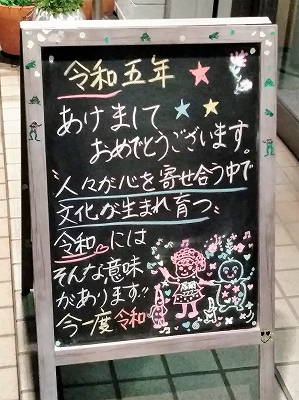 令和五年
あけまして
おめでとうございます。
"人々が心を寄せ合う中で
文化が生まれ育つ"
令和には
そんな意味
があります!!
今一度令和